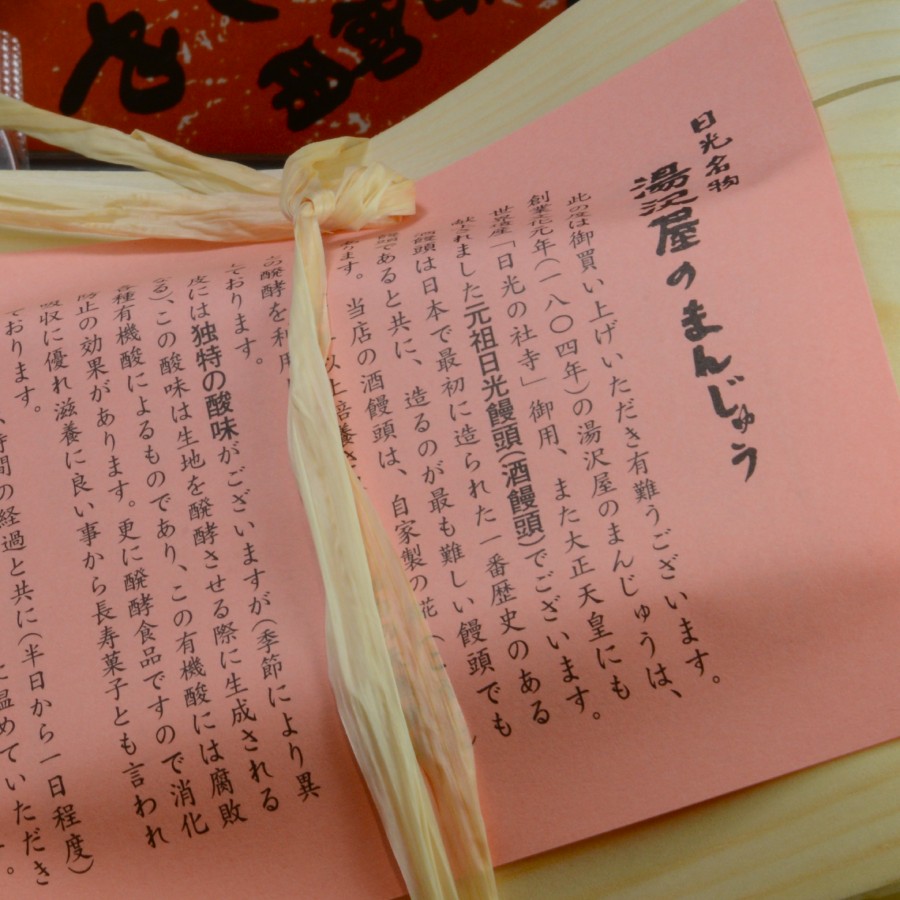 日光名物
湯沢屋のまんじゅう
此の度は御買い上げいただき有難うございます。
創業文化元年(一八〇四年)の湯沢屋のまんじゅうは、
世界遺産「日光の社寺」御用、また大正天皇にも
献上されました元祖日光饅頭(酒饅頭)でございます。
酒饅頭は日本で最初に造られた一番歴史のある
饅頭であると共に、造るのが最も難しい饅頭でも
ります。当店の酒饅頭は、自家製の花(こ
以上培養さ
の醗酵を利用
ております。
皮には独特の酸味がございますが(季節により異
る)、この酸味は生地を醗酵させる際に生成される
各種有機酸によるものであり、この有機酸には腐敗
防止の効果があります。更に醗酵食品ですので消化
吸収に優れ滋養に良い事から長寿菓子とも言われ
ております。
時間の経過と共に(半日から一日程度)
に温めていただき